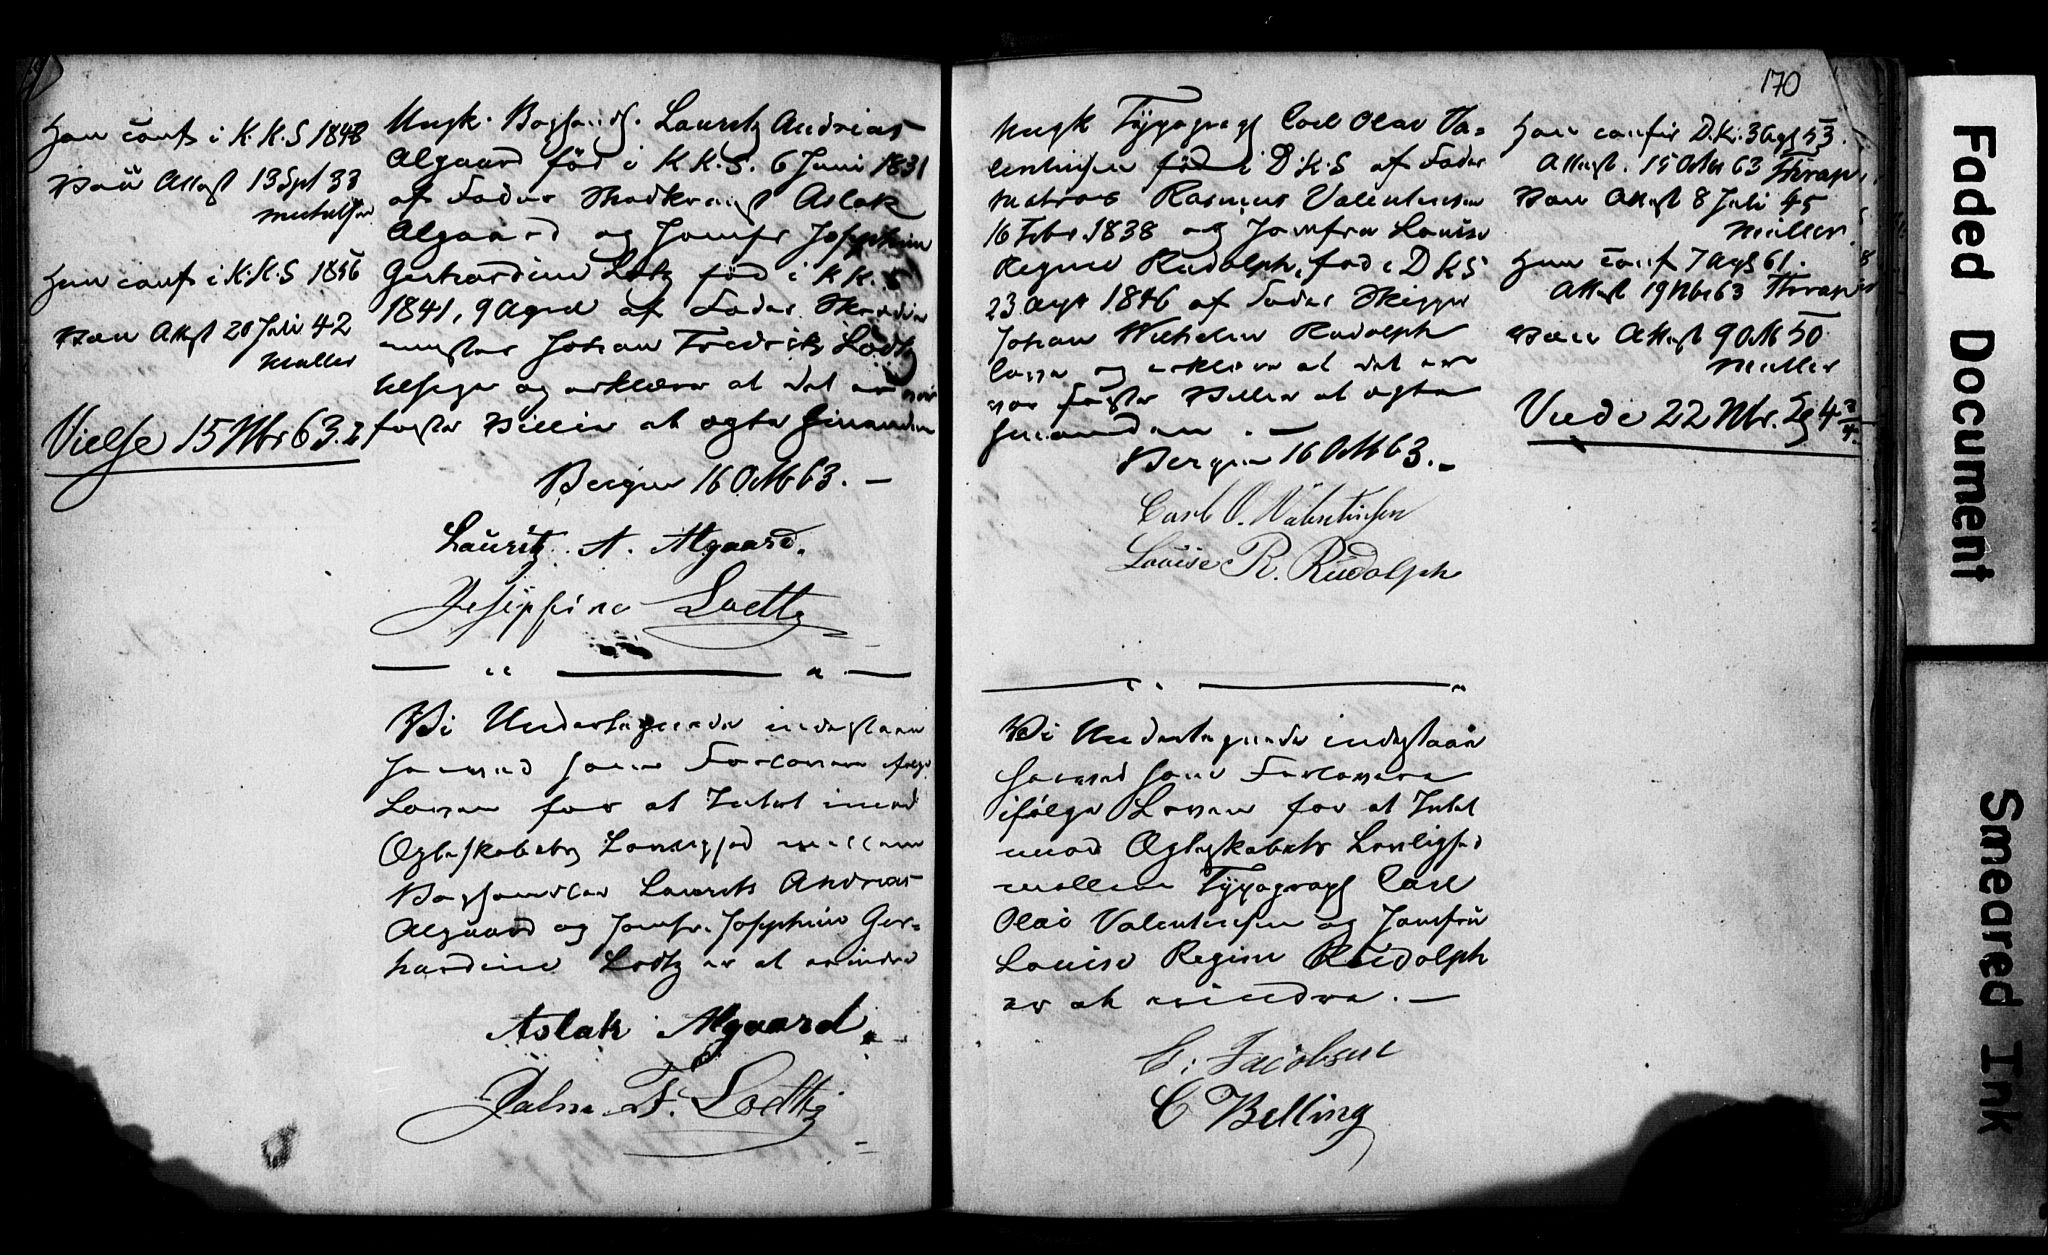 Han conf i K.K.S 1848
Vac Attest 13 Sept 33
Michelsen
Hun conf i K.K.S 1856
Vac Attest 20 Juli 42
Müller
Vielse 15 Nbr 63.
Ungk. Boghandl. Lauritz Andreas
Algaard fød i K K.S. 6 Juni 1831
af Fader Aslak
Algaard og Jomfr Josephine
Gerhardine Lødtz fød i K K. S
1841, 9 April af Fader Skræder
mester Johan Fredrik Lødtz
og erklære at det er vor
faste Villie at ægte hinanden
Bergen 16 Octb 63. —
Lauritz. A. Algaard.
Josephine Loedtz
Vi Undertegnede indestaar
herved som Forlovere ifølge
Loven for at Intet imod
Ægteskabets Lovlighed mellem
Boghandler Lauritz Andreas
Algaard og Jomfr. Josephine Ger-
hardine Lødtz er at erindre
Aslak Algaard.
Johan F. Loedtz
170
Ungk Typograph Carl Olai Va-
lentinsen fød i D.K.S af Fader
Matros Rasmus Valentinsen
16 Febr 1838 og Jomfru Louise
Regine Rudolph, fød i D K S
23 Augt 1846 af Fader Skipper
Johan Wilhelm Rudolph
og erklære at det er
vor faste Villie at ægte
hinanden. —
Bergen 16 Octb 63. —
Carl O. Valentinsen
Louise R. Rudolph
Vi Undertegnede indestaar
herved som Forlovere
ifølge Loven for at Intet
imod Ægteskabets Lovlighed
mellem Typograph Carl
Olai Valentinsen og Jomfru
Louise Regine Rudolph
er at erindre. —
C. Jacobsen
C Belling
Han confir D.K. 53.
Attest. 15 Octbr 63 Thrap
Vac Attest 8 Juli 45
Müller.
Hun conf 7 61.
Attest 19 Nbr 63 Thrap
Vac Attest 9 Octb 50
Müller
Viede 22 Nbr.
Faded Document
Smeared Ink